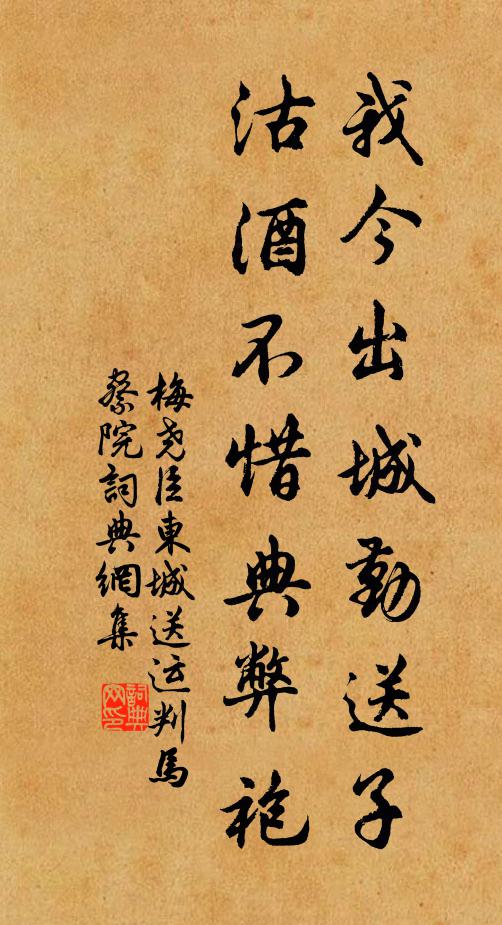 我今出城勤送子
沽酒不惜典弊袍
梅尧臣東城送运判馬
察院詞典網集
詞典
网印